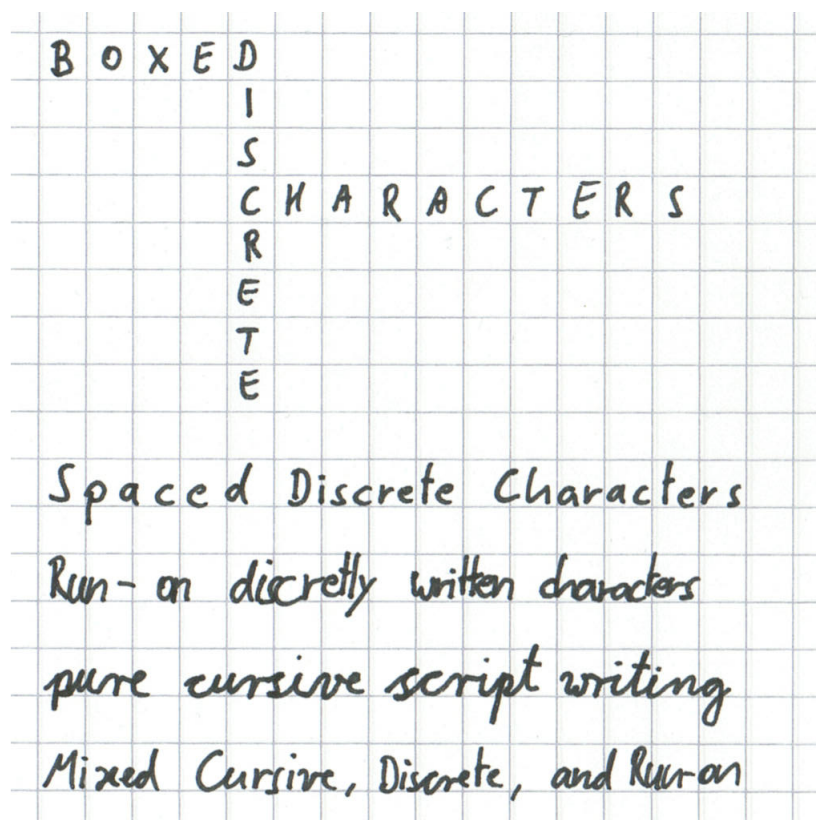 BOXED
DISCRETE
CHARACTERS
Spaced Discrete Characters
Run-on discretly written characters
pure cursive script writing
Mixed Cursive, Discrete, and Run-on